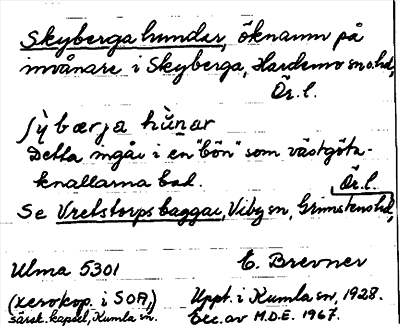 Skybergahundar, öknamn på
invånare i Skyberga, Hardemo sn o. hd,
Ör. l.
ʃỳbærja hùnar
Detta ingår i en "bön" som västgöta-
knallarna bad.
Ör. l.
Se Vretstorpsbaggar, Viby sn, Grimstens hd,
Ulma 5301
E. Brevner
(xerokop. i SOA,)
särsk. kapsel, Kumla sn.
Uppt. i Kumla sn, 1928.
Exc. av M.D.E. 1967.